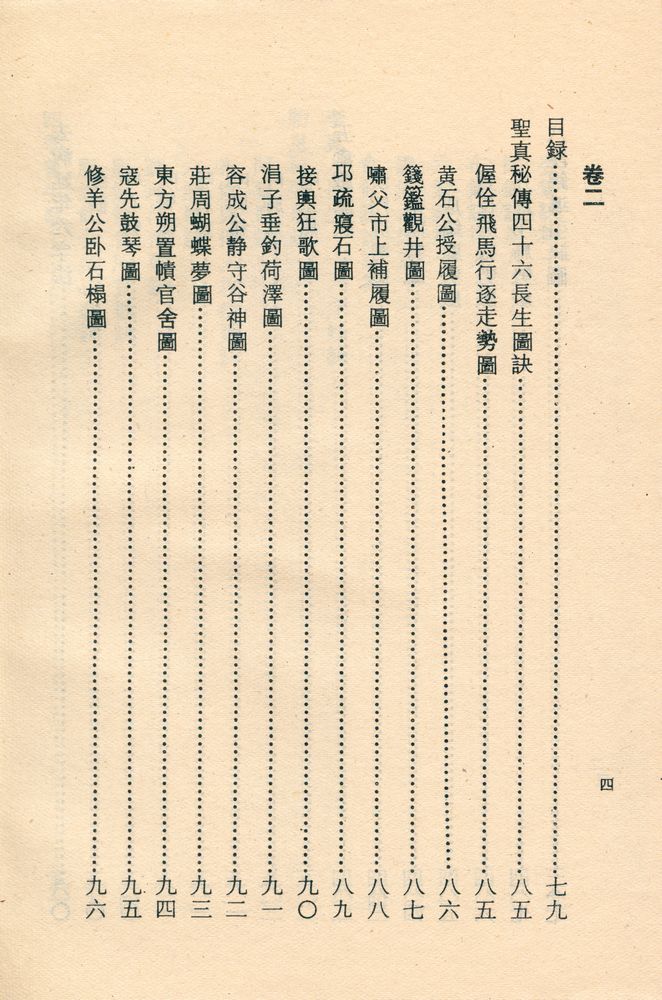 卷二
目録……七九
聖真秘傳四十六長生圖訣……八五
偓佺飛馬行逐走勢圖……八五
黄石公授履圖……八六
籛鑑觀井圖……八七
嘯父市上補履圖……八八
邛疏寢石圖……八九
接輿狂歌圖……九〇
涓子垂釣荷澤圖……九一
容成公静守谷神圖……九二
莊周蝴蝶夢圖……九三
東方朔置幘官舍圖……九四
寇先鼓琴圖……九五
修羊公卧石榻圖……九六
四